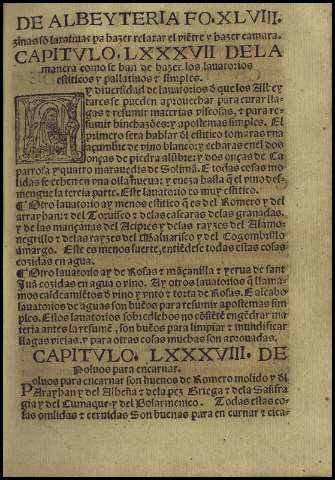 DE ALBEYTERIA FO. XLVIII.
zinas sō laxatiuas pa hazer relaxar el viētre y hazer camara.
CAPITVLO. LXXXVII DE LA
manera como se han de hazer los lauatorios
estiticos y pallatiuos τ simples.
Ay diuersidad de lauatorios d̄ que los Albey
tares se pueden aprouechar para curar lla
gas τ resumir materias viscosas, τ para re
sumir hinchazōes: y apostemas simples. El
primero sera hablar dl̄ estitico tomaras vna
açumbre de vino blanco: y echaras en el dos
onças de piedra alūbre: y dos onças de Ca
parrosa y quatro marauedis de Solimā. E todas cosas mo
lidas se echen en vna olla nueua: y cueza hasta q̄ el vino des
mengue la tercia parte. Este lauatorio es muy estitico.
¶ Otro lauatorio ay menos estitico q̄ es del Romero y del
arrayhan: τ del Toruisco τ delas cascaras delas granadas.
y de las mançanas del Acipres y delas rayzes del Alamo
negrillo τ delas rayzes del Maluarisco y del Cogombrillo
amargo. Este es menos fuerte, entiēdese todas estas cosas
cozidas en agua.
¶ Otro lauatorio ay de Rosas τ māçanilla τ yerua de sant
Juā cozidas en agua o vino. Ay otros lauatorios q̄ llama
mos caldeamiētos d̄ vino y vnto τ torta de Rosas. E acabo
lauatorios de aguas son buēos para resumir apostemas sim
ples. Estos lauatorios sobredichos no cōsiētē engēdrar ma
teria antes la resumē, son buēos para limpiar τ mundificar
llagas viejas, y para otras cosas muchas son aprouadas.
CAPITVLO. LXXXVIII. DE
Poluos para encarnar.
Poluos para encarnar son buenos de Romero molido y dl̄
Arayhan y del Albeña τ dela pez Griega τ dela Salifra
gia y del Çumaque y del Bolarmenico. Todas estas co
sas molidas τ cernidas Son buenas para encarnar τ cica-